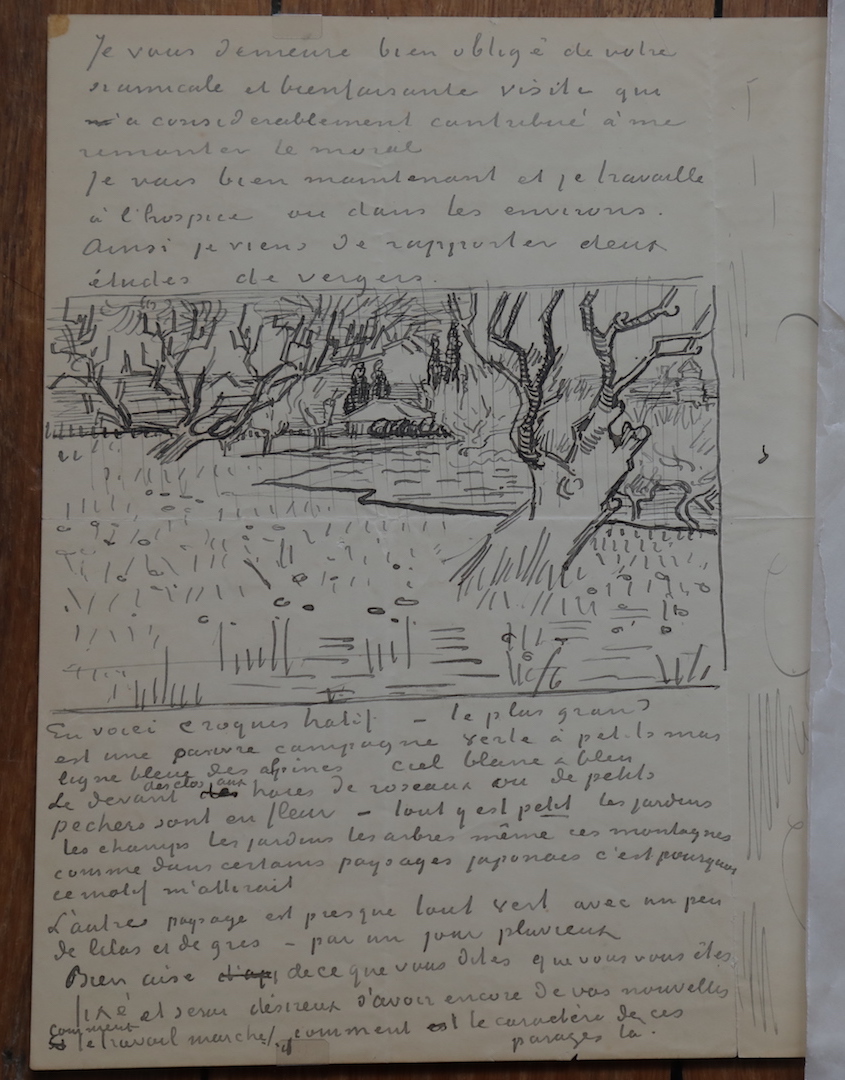 Je vous demeure bien obligé de votre
si amicale et bienfaisante visite qui
m'a considerablement contribué à me
remonter le moral
Je vais bien maintenant et je travaille
à l'hospice ou dans les environs.
Ainsi je viens de rapporter deux
études de vergers.
En voici croquis hatif – le plus grand
est une pauvre campagne verte à petits mas
ligne bleue des alpines ciel blanc & bleu
Le devant des clos aux haies de roseaux ou de petits
pechers sont en fleur – tout y est petit les jardins
les champs les jardins les arbres même ces montagnes
comme dans certains paysages japonais c'est pourquoi
ce motif m'attirait
L'autre paysage est presque tout vert avec un peu
de lilas et de gris – par un jour pluvieux
Bien aise de ce que vous dites que vous vous êtes
fixé et serai désireux d'avoir encore de vos nouvelles
comment le travail marche, comment est le caractère de ces
parages là.